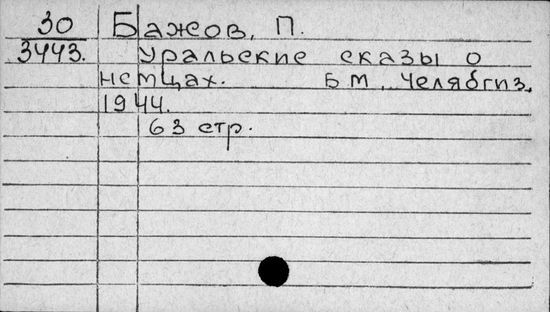 30 Бажов, П.
3443. Уральские сказы о
немцах. Б м, Челябгиз,
1944.
63 стр.